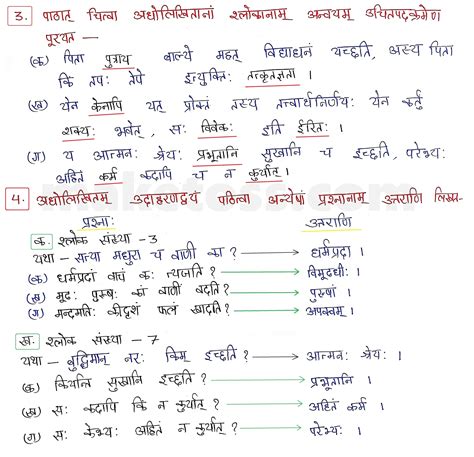 3. पाठात् चित्वा अधोलिखितानां श्लोकानाम् अन्वयम् उचितपदक्रमेण
पूरयत —
(क) पिता पुत्राय बाल्ये महत् विद्याधनं यच्छति, अस्य पिता
किं तपः तेपे इत्युक्तिः तत्कृतज्ञता ।
(ख) येन केनापि यत् प्रोक्तं तस्य तत्त्वार्थनिर्णयः येन कर्तुं
शक्यः भवेत्, सः विवेकः इति ईरितः ।
(ग) य आत्मनः श्रेयः प्रभूतानि सुखानि च इच्छति, परेभ्यः
अहितं कर्म कदापि च न कुर्यात् ।
4. अधोलिखितम् उदाहरणद्वयं पठित्वा अन्येषां प्रश्नानाम् उत्तराणि लिखत-
प्रश्नाः उत्तराणि
क. श्लोक संख्या -3
यथा - सत्या मधुरा च वाणी का? धर्मप्रदा ।
(क) धर्मप्रदां वाचं कः त्यजति? विमूढधीः ।
(ख) मूढः पुरुषः कां वाणीं वदति? परुषां ।
(ग) मन्दमतिः कीदृशं फलं खादति? अपक्वम् ।
ख. श्लोक संख्या - 7
यथा - बुद्धिमान् नरः किम् इच्छति? आत्मनः श्रेयः ।
(क) कियन्ति सुखानि इच्छति? प्रभूतानि ।
(ख) सः कदापि किं न कुर्यात्? अहितं कर्म ।
(ग) सः केभ्यः अहितं न कुर्यात्? परेभ्यः ।